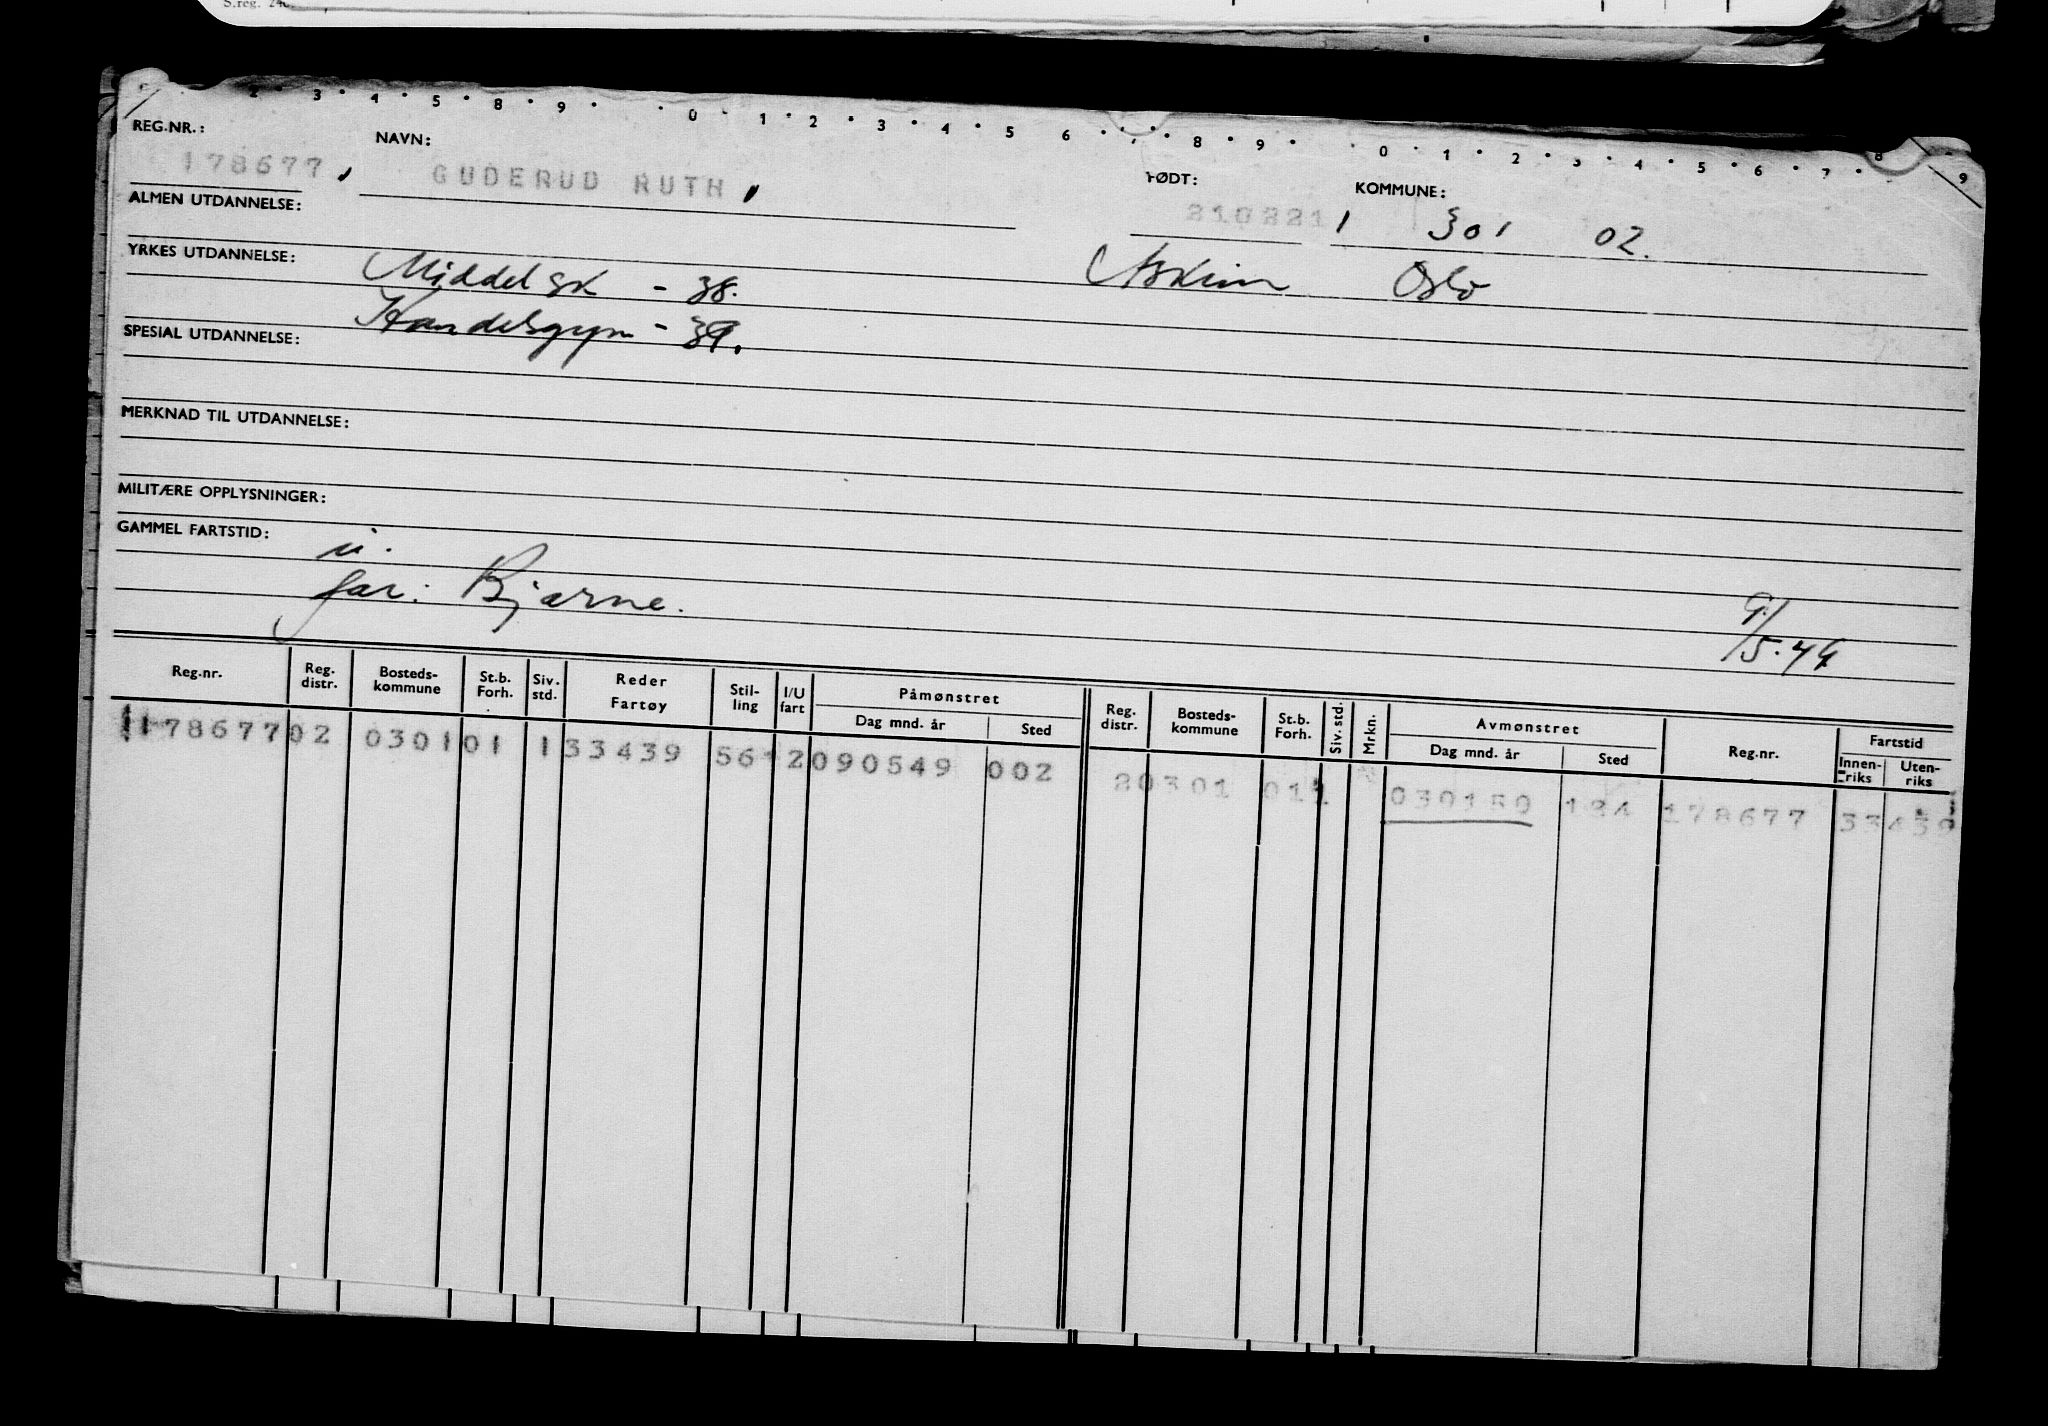 S.reg. 240
2 · 3 · 4 · 5 · 8 · 9 · · 0 · 1 · 2 · 3 · 4 · 5 6 · · 8 · 9 · · 0 · 1 · 2 · 3 · 4 · 5 · 6 · 7 · 8 9
REG.NR.: NAVN: FØDT: KOMMUNE:
178677, GUDERUD RUTH, 210221 301 02.
ALMEN UTDANNELSE:
YRKES UTDANNELSE: Middelsk - 38. Askim Oslo
Handelsgym - 39.
SPESIAL UTDANNELSE:
MERKNAD TIL UTDANNELSE:
MILITÆRE OPPLYSNINGER:
GAMMEL FARTSTID:
far: Bjarne. 9/5-49
Reg.nr. Reg. distr. Bosteds-kommune St.b. Forh. Siv. std. Reder Fartøy Stil-ling I/U fart Påmønstret Dag mnd. år Sted Reg. distr. Bosteds-kommune St.b. Forh. Siv. std. Mrkn. Avmønstret Dag mnd. år Sted Reg.nr. Fartstid Innen-riks Uten-riks
178677 02 0301 01 1 33439 561 2 090549 002 2 0301 01 1 030150 184 178677 33439